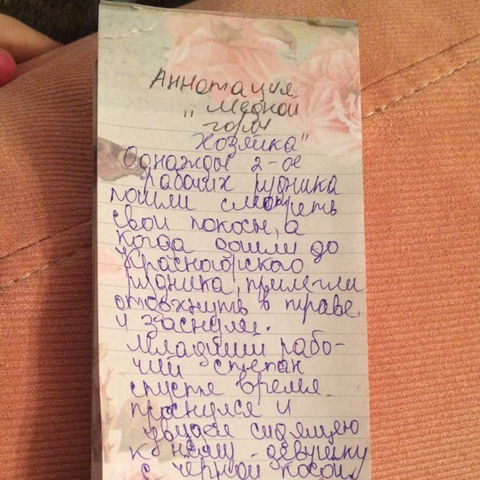 Аннотация
"Медной
горы
Хозяйка"
Однажды 2-ое
рабочих рудника
пошли смотреть
свои покосы, а
когда дошли до
Красногорского
рудника, прилегли
отдохнуть в траве
и заснули.
Младший рабо-
чий степан
спустя время
проснулся и
увидел сидящею
к ним девушку
с чёрной косой.